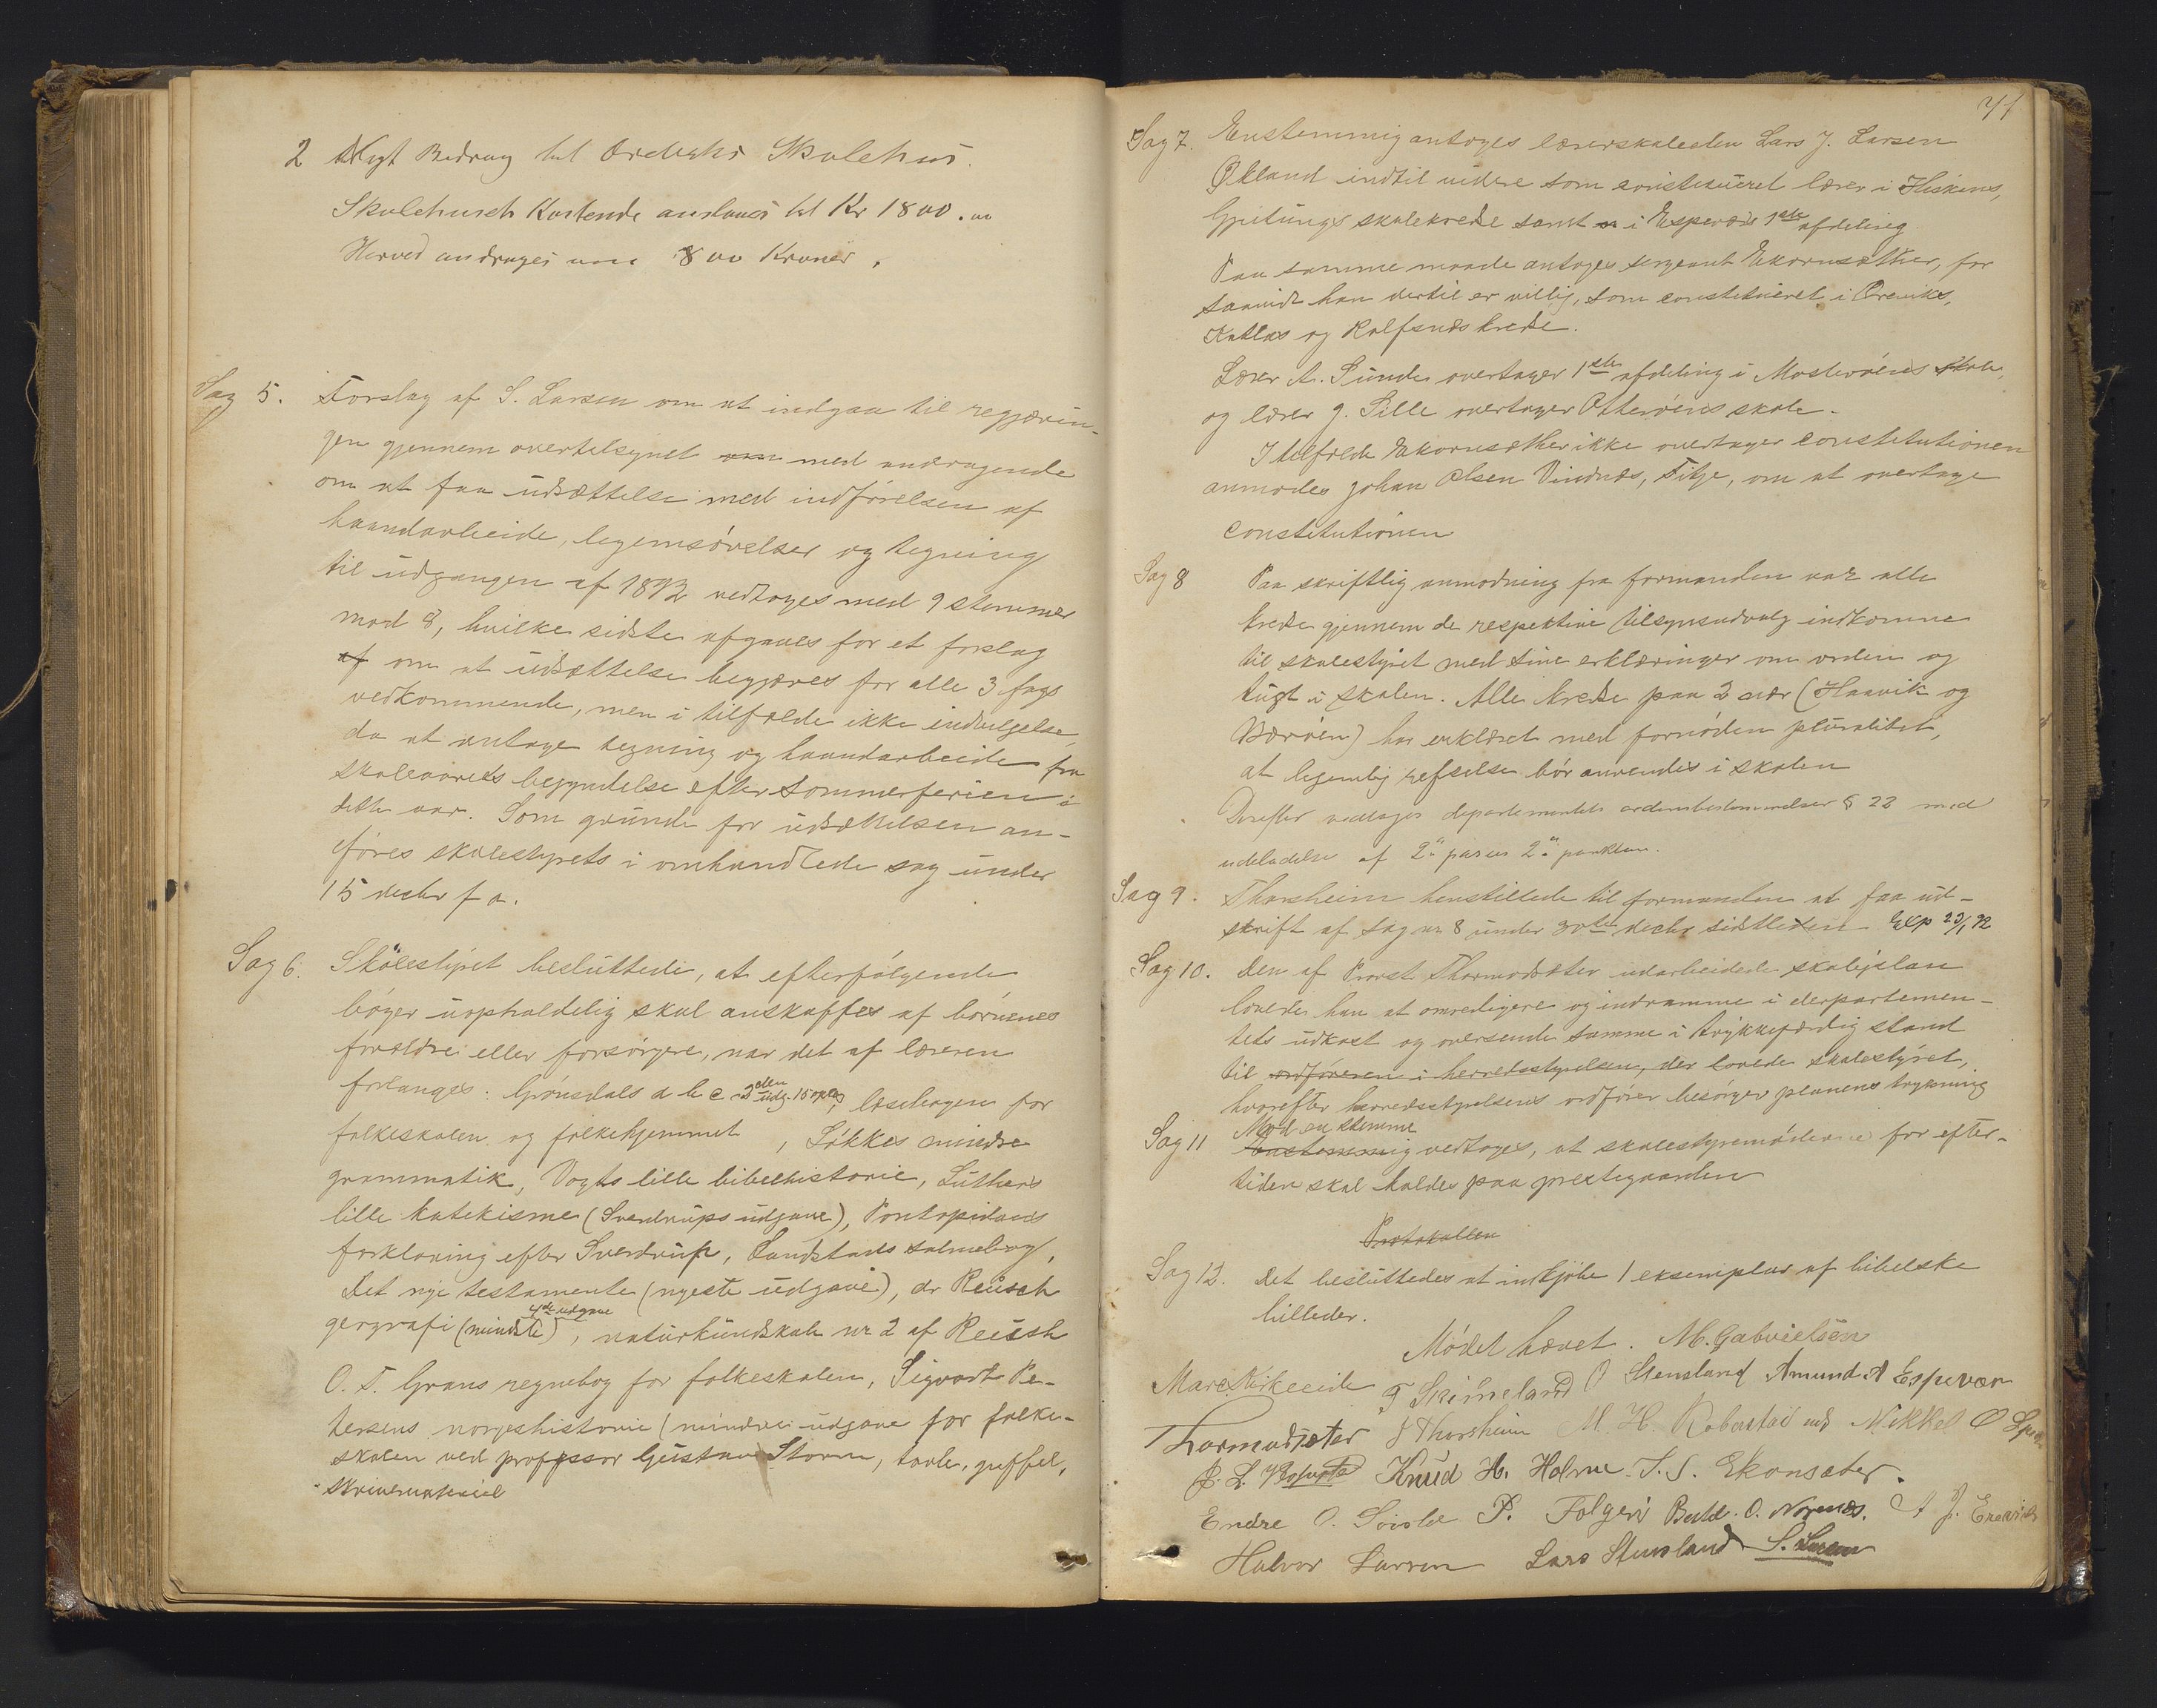 2 Nyt Bidrag til Ørevigks Skolehus.
Skolehusets Kostende anslaaes til Kr 1800.00
Herved andrages om 800 Kroner.
Sag 5. Forslag af S. Larsen om at indgaa til regjærin-
gen gjennem overtilsynet med andragende
om at faa udsættelse med indførelsen af
haandarbeide, legemsøvelser og tegning
til udgangen af 1892 vedtoges med 9 stemmer
mod 8, hvilke sidste afgaves for et forslag
af om at udsættelse begjæres for alle 3 fags
vedkommende, men i tilfælde ikke indvilgelse,
da at antage tegning og haandarbeide fra
skoleaarets begyndelse efter sommerferien i
dette aar. Som grunde for udsættelsen an-
føres skolestyrets i omhandlede sag under
15 decbr f a.
Sag 6. Skolestyret besluttede, at efterfølgende
bøger uopholdelig skal anskaffes af børnenes
forældre eller forsørgere, naar det af læreren
forlanges: Grønsdals a b c 2den udg. 15 opl., læsebogen for
folkeskolen og folkehjemmet, Løkkes mindre
grammatik, Vogts lille bibelhistorie, Luthers
lille katekisme (Sverdrups udgave), Pontopidans
forklaring efter Sverdrup, Landstads salmebog,
Det nye testamente (nyeste udgave), dr Reusch
geografi (mindste) 4de udgave, naturkundskab nr 2 af Reusch
O. T. Grans regnebog for folkeskolen, Sigvart Pe-
tersens norgeshistorie (mindre udgave for folke-
skolen ved professor Gustav Storm, tavle, guffel,
skrivemateriel
71
Sag 7. Enstemmig antoges lærerskoleelev Lars J. Larsen
Økland indtil videre som constitueret lærer i Hiskens,
Gjeitungs skolekreds samt i Espevær 1ste afdeling
Paa samme maade antoges sergeant Ekornsæther, for
saavidt han dertil er villig, som constitueret i Ørevik,
Katlas og Rolfsnes kreds.
Lærer A. Sunde overtager 1ste afdeling i Mosterøens skole,
og lærer J. Lille overtager Otterøens skole.
I tilfælde Ekornsæther ikke overtager constitutionen
anmodes Johan Olsen Vindnæs, Fitje, om at overtage
constitutionen
Sag 8 Paa skriftlig anmodning fra formanden var alle
kredse gjennem de respektive tilsynsudvalg indkomne
til skolestyret med sine erklæringer om orden og
tugt i skolen. Alle kredse paa 2 nær (Haavik og
Børøen) har erklæret med fornøden pluralitet,
at legemlig refselse bør anvendes i skolen
Derefter vedtoges departementets ordensbestemmelser § 23 med
udeladelse af 2" passus 2" punktum.
Sag 9. Thorsheim henstillede til formanden at faa ud-
skrift af sag nr 8 under 30te decbr sidstleden Exp 23/1 92
Sag 10. Den af Provst Thormodsæter udarbeidede skoleplan
lovede han at omredigere og indramme i departemen-
tets udkast og oversende samme i trykkefærdig stand
til ordføreren i herredsstyrelsen, der lovede skolestyret,
hvorefter herredsstyrelsens ordfører besørger planens trykning
Sag 11 Mod en stemme
Enstemmig vedtoges, at skolestyremøderne for efter-
tiden skal holdes paa prestegaarden
Protokollen
Sag 12. Det besluttedes at indkjøbe 1 eksemplar af bibelske
billeder.
Mødet hævet. M. Gabrielsen
Mare Kirkeeide T Skimeland O Stensland Amund A Espevær
Thormodsæter J Thorsheim M. H. Roberstad Mikkel O
Knud H. Holme. T. S. Ekonsæter.
Endre O. P. Folgerø Bertel. O. Nornæs. A J. Erevik
Halvor Larsen Lars Stensland S. Larsen